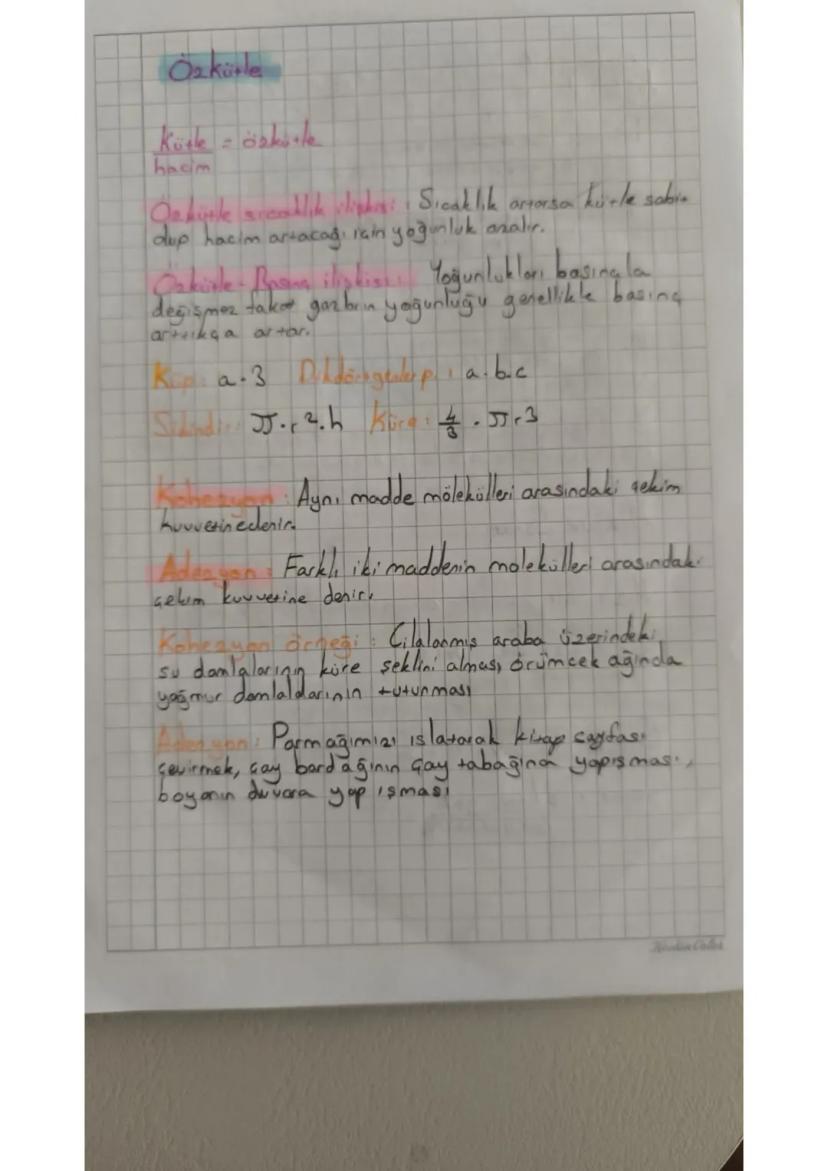 Özkütle
Kütle = özkütle
hacim
Özkütle sıcaklık ilişkisi: Sıcaklık artarsa kütle sabit
olup hacim artacağı için yoğunluk azalır.
Özkütle-Basınç ilişkisi: Yoğunlukları basınçla
değişmez fakat gazların yoğunluğu genellikle basınç
arttıkça artar.
Küp: a.3 Dikdörtgenlerp: a.b.c
Silindir: π.r².h Küre: 4/3 . π r3
Kohezyon: Aynı madde mölekülleri arasındaki çekim
kuvvetine denir.
Adezyon: Farklı iki maddenin molekülleri arasındaki
çekim kuvvetine denir.
Kohezyon örneği: Cilalanmış araba üzerindeki
su damlalarının küre şeklini alması, örümcek ağında
yağmur damlaldarının tutunması
Adezyon: Parmağımızı ıslatarak kitap sayfası
çevirmek, çay bardağının çay tabağına yapışması,
boyanın duvara yapışması